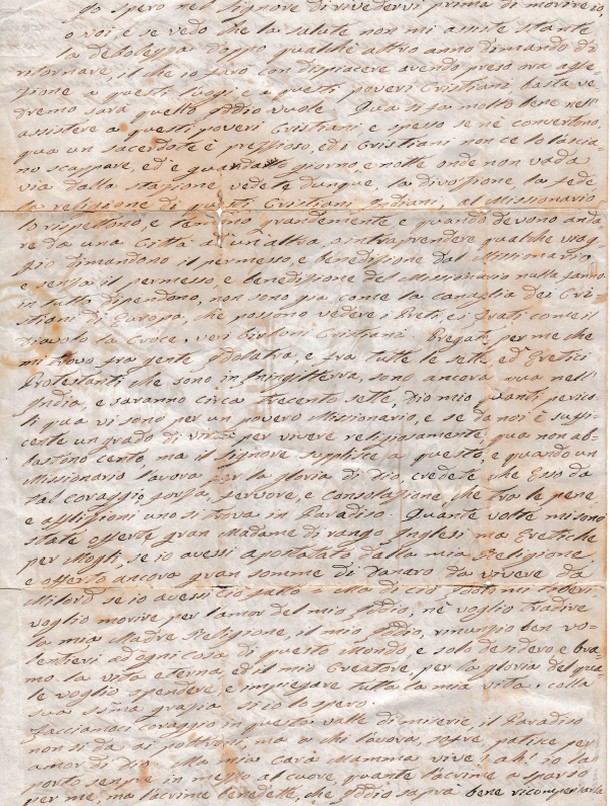 go spero nel Signore di rivedervi prima di morire io,
o voi e se vedo che la salute non mi assiste stante
la debolezza doppo qualche altro anno dimando di
ritornare, il che io farò con dispiacere avendo preso ora affe-
zione a questi luogi e a questi poveri Cristiani, basta ve-
dremo sarà quello Iddio vuole. Qua si fa molto bene nell'
assistere a questi poveri Cristiani e spesso se nè convertono,
qua un sacerdote è prezzioso, ed i Cristiani non ce lo lascia-
no scappare, ed è giorno, e notte onde non vada
via dalla stazione, vedete dunque, la divozione, la fede
la religione di questi Cristiani Indiani, al Missionario
lo rispettono, e temono grandemente e quando devono anda
re da una Città ad un'altra, o intraprendere qualche viag
gio dimandono il permesso, e benedizione dal Missionario,
e senza il permesso e benedizione del Missionario nulla fanno
in tutto dipendono, non sono gia come la canaglia dei Cri-
stiani di Europa, che possono vedere i Preti, e i frati come il
Diavolo la Croce, veri birboni Cristiani. Pregate per me che
mi trovo fra gente Idolatra, e fra tutte le sette ed Eretici
Protestanti che sono in Ininghilterra, sono ancora qua nell'
India e saranno circa trecento sette, Dio mio quanti perico-
li qua vi sono per un povero Missionario, e se da noi è suffi-
cente un grado di virtù per vivere religiosamente, qua non ab-
bastono cento, ma il Signore supplisce a questo, e quando un
Missionario lavora per la gloria di Dio, credete che Esso da
tal coraggio forza, fervore, e consolazione, che tra le pene
e afflizioni uno si trova in Paradiso. Quante volte mi sono
state offerte gran Madame di rango Inglesi ma Eretiche
per Mogli, se io avessi apostatato dalla mia Religione
e offerto ancora gran somme di danaro da vivere da
Milord se io avessi ciò fatto. Ma di ciò Iddio mi liberi
voglio morire per l'amor del mio Iddio, nè voglio tradire
la mia Madre Religione, il mio Iddio, rinunzio ben vo-
lentieri ad ogni cosa di questo Mondo, e solo desidero e bra
mo la vita eterna ed il mio Creatore, per la gloria del qua
le voglio spendere, e impiegare tutta la mia vita, colla
sua grazia si lo spero.
Facciamoci coraggio in questa valle di miserie, il Paradiso
non si da ai poltroni, ma a chi lavora, sofre, patisce per
amor di Dio. Ma mia cara Mamma vive! ah! io la
porto sempre in mezzo al cuore, quante lacrime a sparso
per me, ma lacrime benedette, che Iddio saprà bene ricompensarle